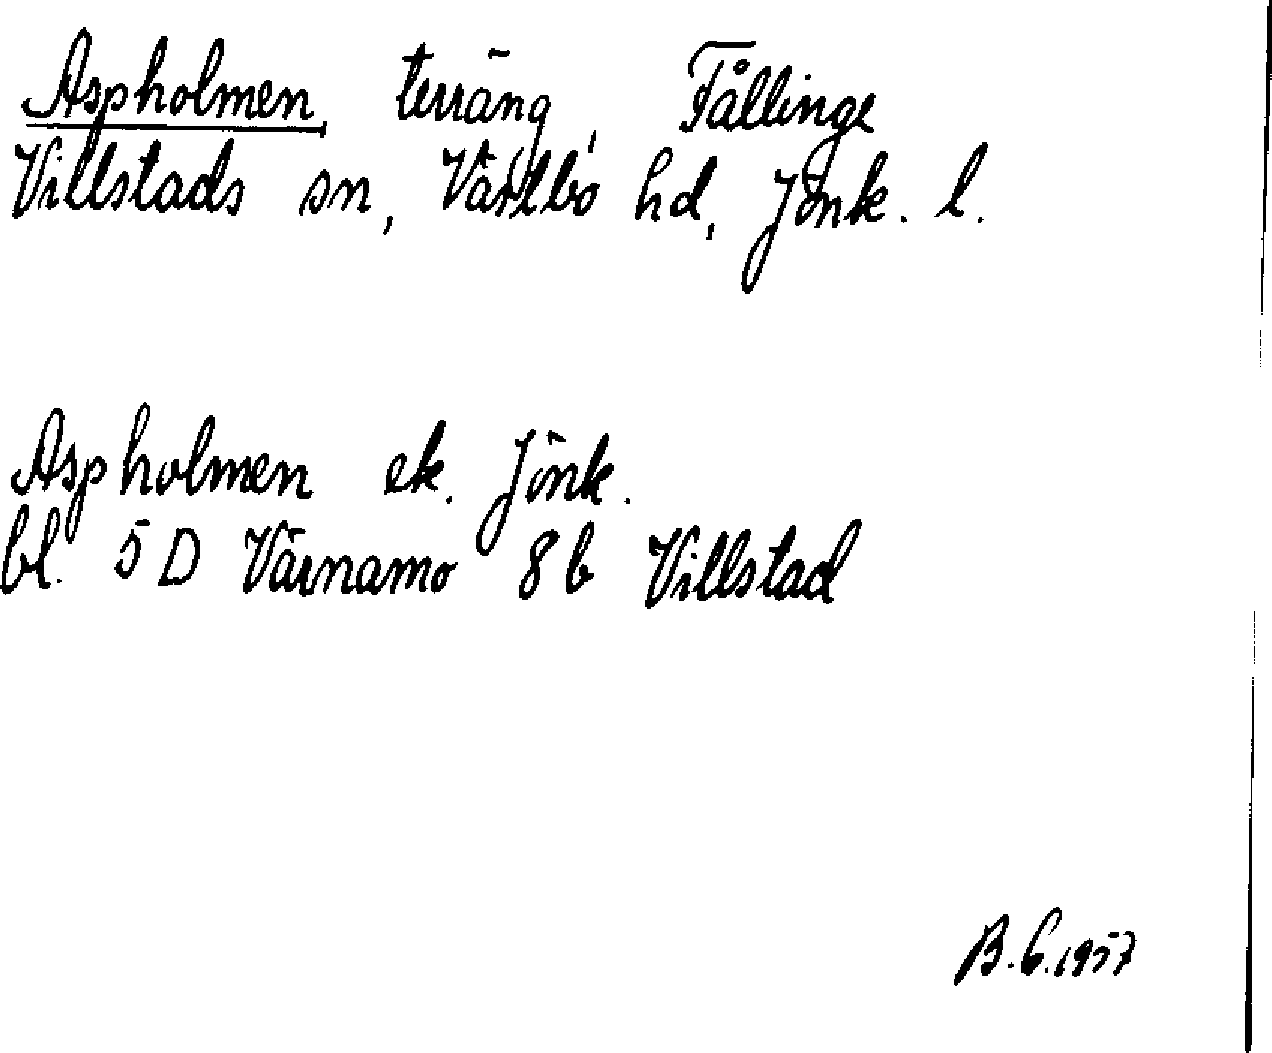 Aspholmen, terräng, Fållinge
Villstads sn, Västbo hd, Jönk. l.
Aspholmen ek. Jönk.
bl. 5 D Värnamo 8 b Villstad
B.G.1957